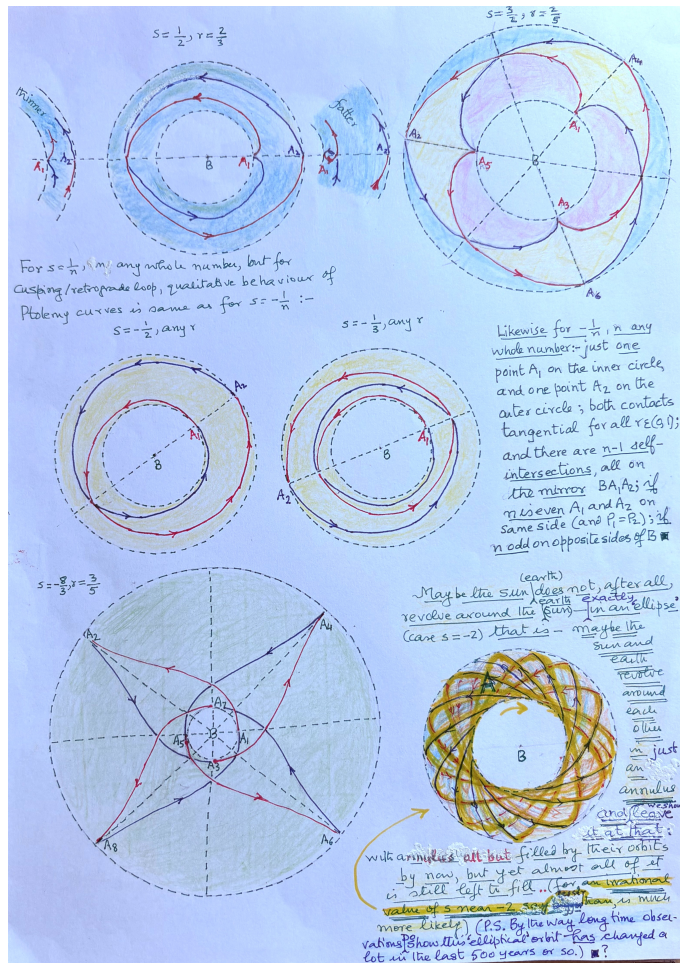 s = 1/2, r = 2/3
thinner
A1
A2
B
A1
A2
fatter
A1
A2
s = 3/2, r = 2/5
A4
A2
A1
A5
B
A3
A6
For s = 1/n, n any whole number, but for
cusping/retrograde loop, qualitative behaviour of
Ptolemy curves is same as for s = -1/n :-
s = -1/2, any r
A2
A1
B
s = -1/3, any r
A1
A2
B
Likewise for -1/n, n any
whole number:- just one
point A1 on the inner circle,
and one point A2 on the
outer circle; both contacts
tangential for all r∈(0,1);
and there are n-1 self-
intersections, all on
the mirror BA1A2; if
n is even A1 and A2 on
same side (and P1=P2); if
n odd on opposite sides of B
s = -8/3, r = 3/5
A2
A4
A2
B
A5
A1
A3
A8
A6
(earth)
Maybe the sun does not, after all,
earth exactly
revolve around the (sun) in an ellipse
(case s = -2) that is - maybe the
sun and
earth
revolve
around
each
other
in just
an
annulus
and leave
it at that:
A
B
with annulus all but filled by their orbits
by now, but yet almost all of it
is still left to fill.. (for an irrational
value of s near -2, say than, is much
more likely) (P.S. By the way long time obser-
vations Do show this 'elliptical' orbit has changed a
lot in the last 500 years or so.) ?